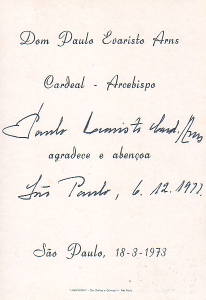 Dom Paulo Evaristo Arns
Cardeal - Arcebispo
Paulo Evaristo Card. Arns
agradece e abençoa
São Paulo, 6.12.1977.
São Paulo, 18-3-1973